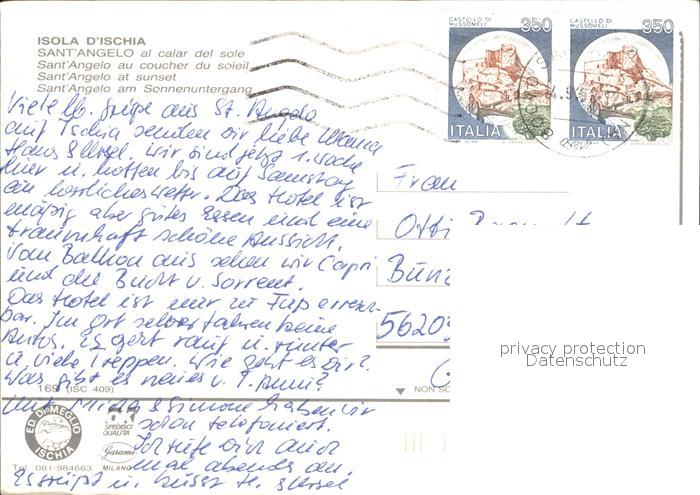 ISOLA D'ISCHIA
SANT'ANGELO al calar del sole
Sant'Angelo au coucher du soleil
Sant'Angelo at sunset
Sant'Angelo am Sonnenuntergang
CASTELLO DI
MUSSOMELI
350
ITALIA
CASTELLO DI
MUSSOMELI
350
ITALIA
Viele lb. Grüße aus St. Angelo
auf Ischia senden wir liebe Mama
Hans. Wir sind jetzt 1 Woche
hier u. hoffen bis auf Samstag
ein herrliches Wetter. Das Hotel ist
mäßig aber gutes Essen und eine
traumhaft schöne Aussicht.
Vom Balkon aus sehen wir Capri
und die Bucht v. Sorrent.
Das Hotel ist nur zu Fuß erreich-
bar. Im Ort selber fahren keine
Autos. Es geht rauf u. runter
u. viele Treppen. Wie geht es Dir?
Was gibt es neues v. T. Anni?
Mit & Simone haben wir
schon telefoniert.
Ich rufe Dich auch
mal abends an.
Es grüßt u. küsst H.
Frau
Otti
5620
privacy protection
Datenschutz
169 (ISC 409)
ED. DI MEGLIO
ISCHIA
OK
SPEDISCI
QUALITÀ
Garami
MILANO
Tel. 081-984663